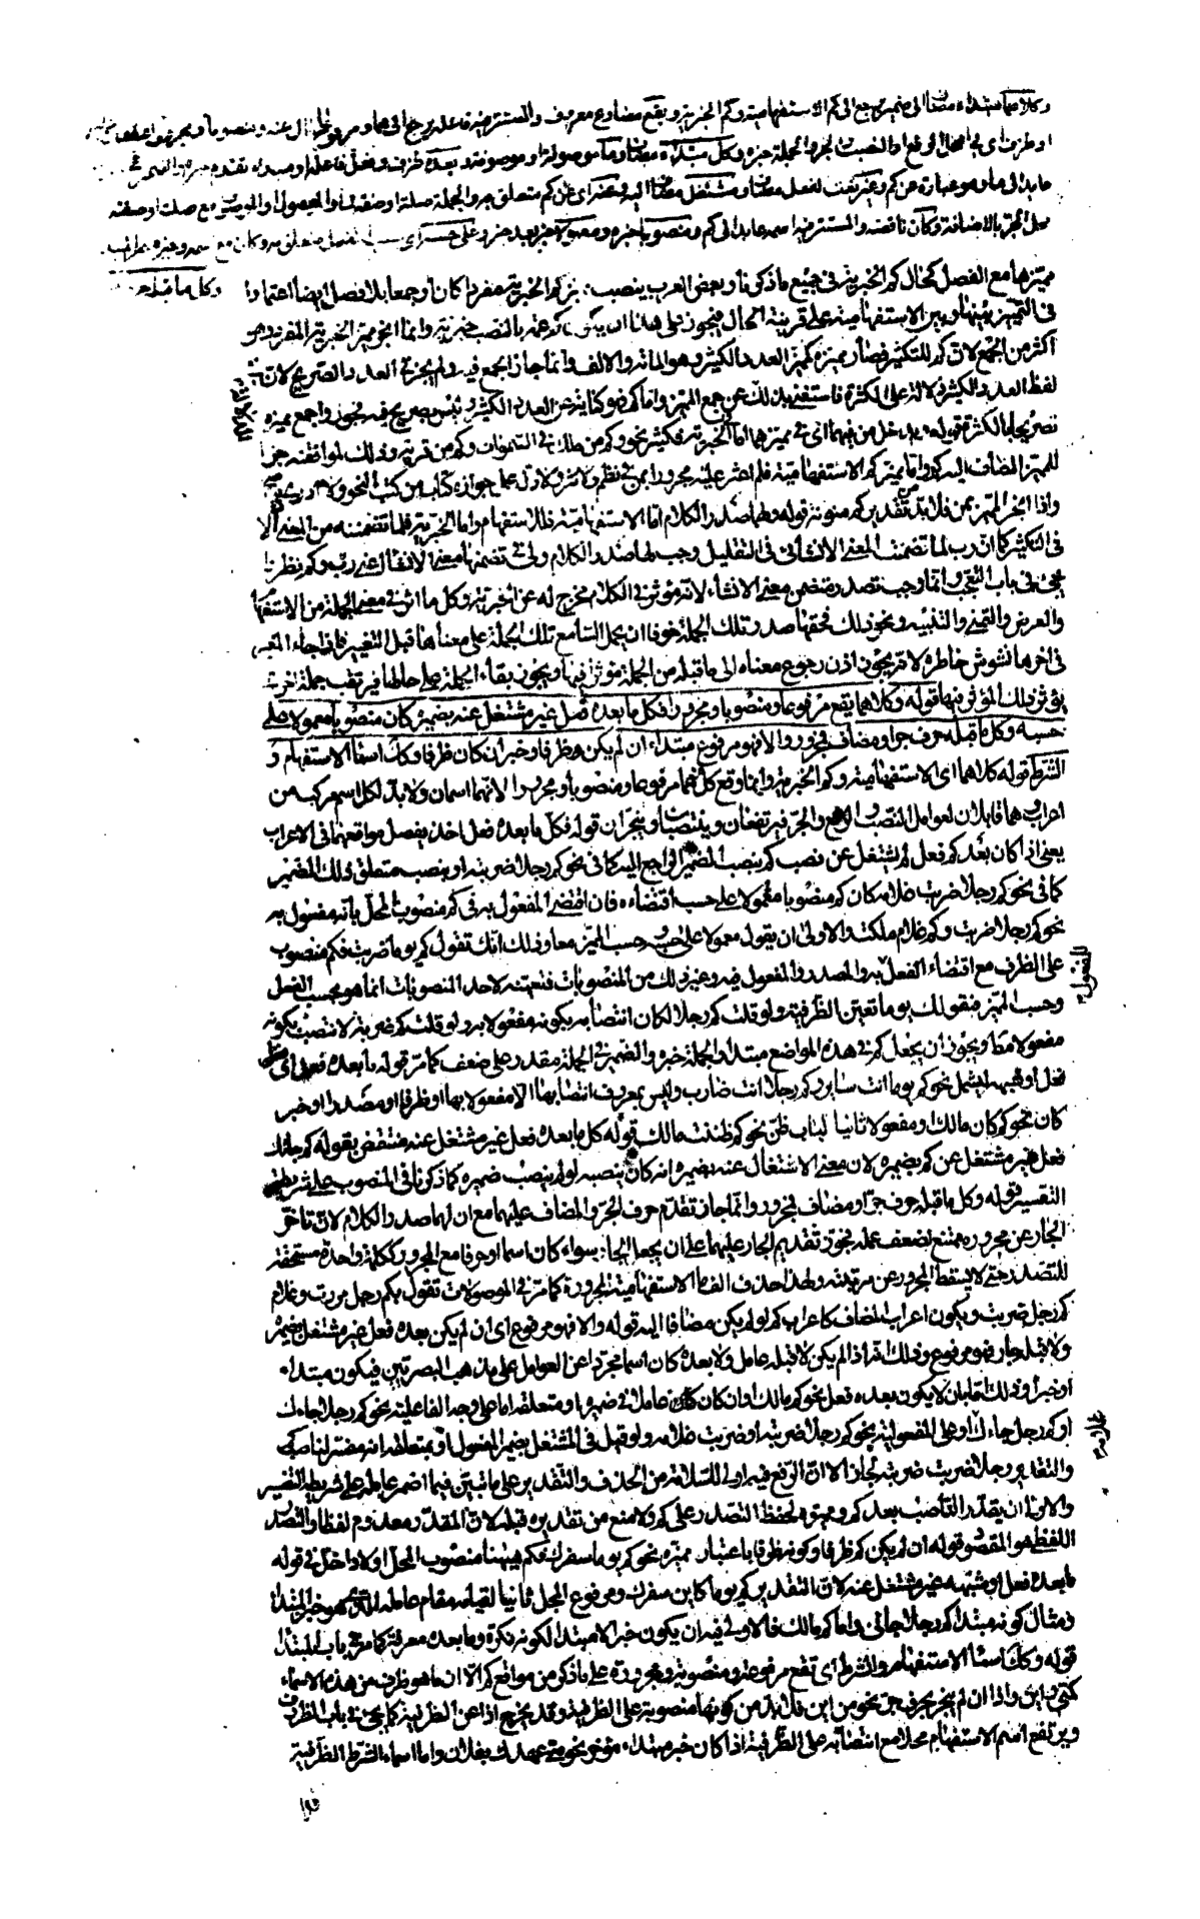 وكلاهما مبتداء مضاف الى ضمير يرجع الى كم الاستفهامية وكم الخبرية ويقع مضارع معروف والمستتر فيه فاعله يرجع الى هما ومرفوعا حال عنه ومنصوبا ومجرورا عطف
او ظرف اى في محال الرفع او النصب او الجر والجملة خبره وكل مبتداء مضاف وما موصولة او موصوفة وبعده ظرف وفعل فاعله او مبتداء تقدم خبره والضمير
عايد الى ما وهو عبارة عن كم وغير نعت لفعل مضاف ومشتغل مضاف اليه وعنه اى عن كم متعلق به والجملة صلة او صفة لما والموصول او الموصوف مع صلته او صفته
محل الجر بالاضافة وكان ناقصة والمستتر فيه اسمه عايد الى كم ومنصوبا خبره ومعمولا خبر بعد خبر وعلى حسبه
مميزها مع الفصل كحال كم الخبرية في جميع ما ذكرنا وبعض العرب ينصب مميز كم الخبرية مفردا كان او جمعا بلا فصل ايضا اعتمادا
وكل ما قبله
في التمييز بينها وبين الاستفهامية على قرينة الحال فيجوز على هذا ان يكون كم عمة بالنصب خبرية وانما انجر مميز الخبرية المفرد وهو
اكثر من الجمع لان كم للتكثير فصار مميزه كمميز العدد الكثير وهو المائة والالف وانما جاز الجمع فيه ولم يجز في العدد الصريح لان
لفظ العدد الكثير دلالة على الكثرة فاستغنى بذلك عن جمع المميز واما كم فهو كناية عن العدد الكثير وليس بصريح فيه فجوزوا جمع مميزه
تصريحا بالكثرة قوله ويدخل من فيهما اى في مميزهما اما في الخبرية فكثير نحو وكم من ملك في السموات وكم من قرية وذلك لموافقته جر
المميز المضاف اليه كم واما مميز كم الاستفهامية فلم اعثر عليه مجرورا بمن في نظم ولا نثر ولا دل على جوازه كتاب من كتب النحو ولا ادرى
واذا انجر المميز بمن فلا بد من تقدير كم منونة قوله ولهما صدر الكلام اما الاستفهامية فللاستفهام واما الخبرية فلما تضمنته من المعنى
في التكثير كما ان رب لما تضمنت المعنى الانشائى في التقليل وجب لها صدر الكلام
يجئ في باب التعجب وانما وجب تصدر متضمن معنى الانشاء لانه مؤثر في الكلام مخرج له عن الخبرية وكل ما اثر في معنى الجملة من الاستفهام
والعرض والتمنى والتنبيه ونحو ذلك فحقها صدر تلك الجملة خوفا ان يحمل السامع تلك الجملة على معناها قبل التغيير فاذا جاء المغير
في اخرها تشوش خاطره لانه يجوز اذن رجوع معناه الى ما قبله من الجملة مؤثرا فيها ويجوز بقاء الجملة على حالها فيترقب جملة اخرى
يؤثر ذلك المؤثر فيها قوله وكلاهما يقع مرفوعا ومنصوبا ومجرورا فكل ما بعده فعل غير مشتغل عنه بضميره كان منصوبا معمولا على
حسبه وكل ما قبله حرف جر او مضاف فمجرور والا فهو مرفوع مبتداء ان لم يكن ظرفا وخبر ان كان ظرفا وكذا اسماء الاستفهام و
الشرط قوله كلاهما اى الاستفهامية وكم الخبرية وانما وقع كل منهما مرفوعا ومنصوبا ومجرورا لانهما اسمان ولا بد لكل اسم مركب من
اعراب وهما قابلان لعوامل النصب والرفع والجر فيرتفعان وينتصبان وينجران قوله فكل ما بعده فعل اخذ يفصل مواقعهما في الاعراب
يعنى اذا كان بعد كم فعل لم يشتغل عن نصب كم بنصب الضمير الراجع اليه كما في نحو كم رجلا ضربته او بنصب متعلق ذلك الضمير
كما في نحو كم رجلا ضربت غلامه كان كم منصوبا معمولا على حسب اقتضاءه فان اقتضى المفعول به فكم منصوب المحل بانه مفعول به
نحو كم رجلا ضربت وكم غلام ملكت والاولى ان يقول معمولا على حسبه وحسب المميز معا وذلك انك تقول كم يوما ضربت فكم منصوب
على الظرف مع اقتضاء الفعل به والمصدر والمفعول فيه وغير ذلك من المنصوبات فتعينه لاحد المنصوبات انما هو بحسب الفعل
المفعول
وحسب المميز فبقولك يوما تعين الظرفية ولو قلت كم رجلا لكان انتصابه بكونه مفعولا به ولو قلت كم ضربة لانتصب بكونه
مفعولا مطلقا ويجوز ان يجعل كم في هذه المواضع مبتداء والجملة خبره والضمير في الجملة مقدر على ضعف كما مر قوله ما بعده فعل اى
فعل او شبهه ليشمل نحو كم يوما انت ساير وكم رجلا انت ضارب وليس بمعروف انتصابها الا مفعولا بها او ظرفا او مصدرا او خبر
كان نحو كم كان مالك او مفعولا ثانيا لباب ظن نحو كم ظننت مالك قوله كل ما بعده فعل غير مشتغل عنه منتقض بقوله كم جاءك
فعل غير مشتغل عن كم بضميره لان معنى الاشتغال عنه بضميره انه كان ينصبه لو لم ينصب ضميره كما ذكرنا في المنصوب على شريطة
التفسير قوله وكل ما قبله حرف جر او مضاف فمجرور وانما جاز تقدم حرف الجر والمضاف عليهما مع ان لهما صدر الكلام لان تاخر
الجار عن مجروره ممتنع لضعف عمله فجوز تقديم الجار عليهما على ان يجعل الجار سواء كان اسما او حرفا مع المجرور ككلمة واحدة مستحقة
للتصدر حتى لا يسقط المجرور عن مرتبته ولهذا حذف الف ما الاستفهامية المجرورة كما مر في الموصولات تقول بكم رجل مررت وغلام
كم رجل ضربت ويكون اعراب المضاف كاعراب كم لو لم يكن مضافا اليه قوله والا فهو مرفوع اى ان لم يكن بعده فعل غير مشتغل بضميره
ولا قبله جار فهو مرفوع وذلك انه اذا لم يكن لا قبله عامل ولا بعده كان اسما مجردا عن العوامل على مذهب البصريين فيكون مبتداء
او خبرا وذلك اما بان لا يكون بعده فعل نحو كم مالك وان كان كان عاملا في ضميره او متعلقه اما على وجه الفاعلية نحو كم رجلا جاءك
او كم رجل جاءك او على المفعولية نحو كم رجلا ضربته او ضربت غلامه ولو قيل في المشتغل بضمير المفعول او بمتعلقه انه مفسر لناصب كم
والتقدير كم رجلا ضربت ضربته لجاز الا ان الرفع فيه اولى للسلامة من الحذف والتقدير على ما تبين فيما اضمر عامله على شريطة التفسير
والاولى ان يقدر الناصب بعد كم ومميزه لحفظ التصدر على كم ولا منع من تقديره قبله لان المقدر معدوم لفظا والتصدر
اللفظى هو المقصود قوله ان لم يكن كم ظرفا وكونه ظرفا باعتبار مميزه نحو كم يوما سفرك فكم ههنا منصوب المحل اولا داخل في قوله
ما بعده فعل او شبهه غير مشتغل عنه لان التقدير كم يوما كاين سفرك ومرفوع المحل ثانيا لقيامه مقام عامله الذى هو خبر المبتدا
ومثال كونه مبتدا كم رجلا جاءنى واما كم مالك فالاولى فيه ان يكون خبرا لا مبتدا لكونه نكرة وما بعده معرفة كما مر في باب المبتدا
قوله وكذا اسماء الاستفهام والشرط اى تقع مرفوعة ومنصوبة ومجرورة على ما ذكر من مواقع كم الا ان ما هو ظرف من هذه الاسماء
كمتى واين واذا ان لم ينجر بحرف جر نحو من اين فلا بد من كونها منصوبة على الظرفية وقد يخرج اذا عن الظرفية كما يجئ في باب الظروف
ويرتفع اسم الاستفهام محلا مع انتصابه على الظرفية اذا كان خبر مبتداء مؤخر نحو متى عهدك بفلان واما اسماء الشرط الظرفية